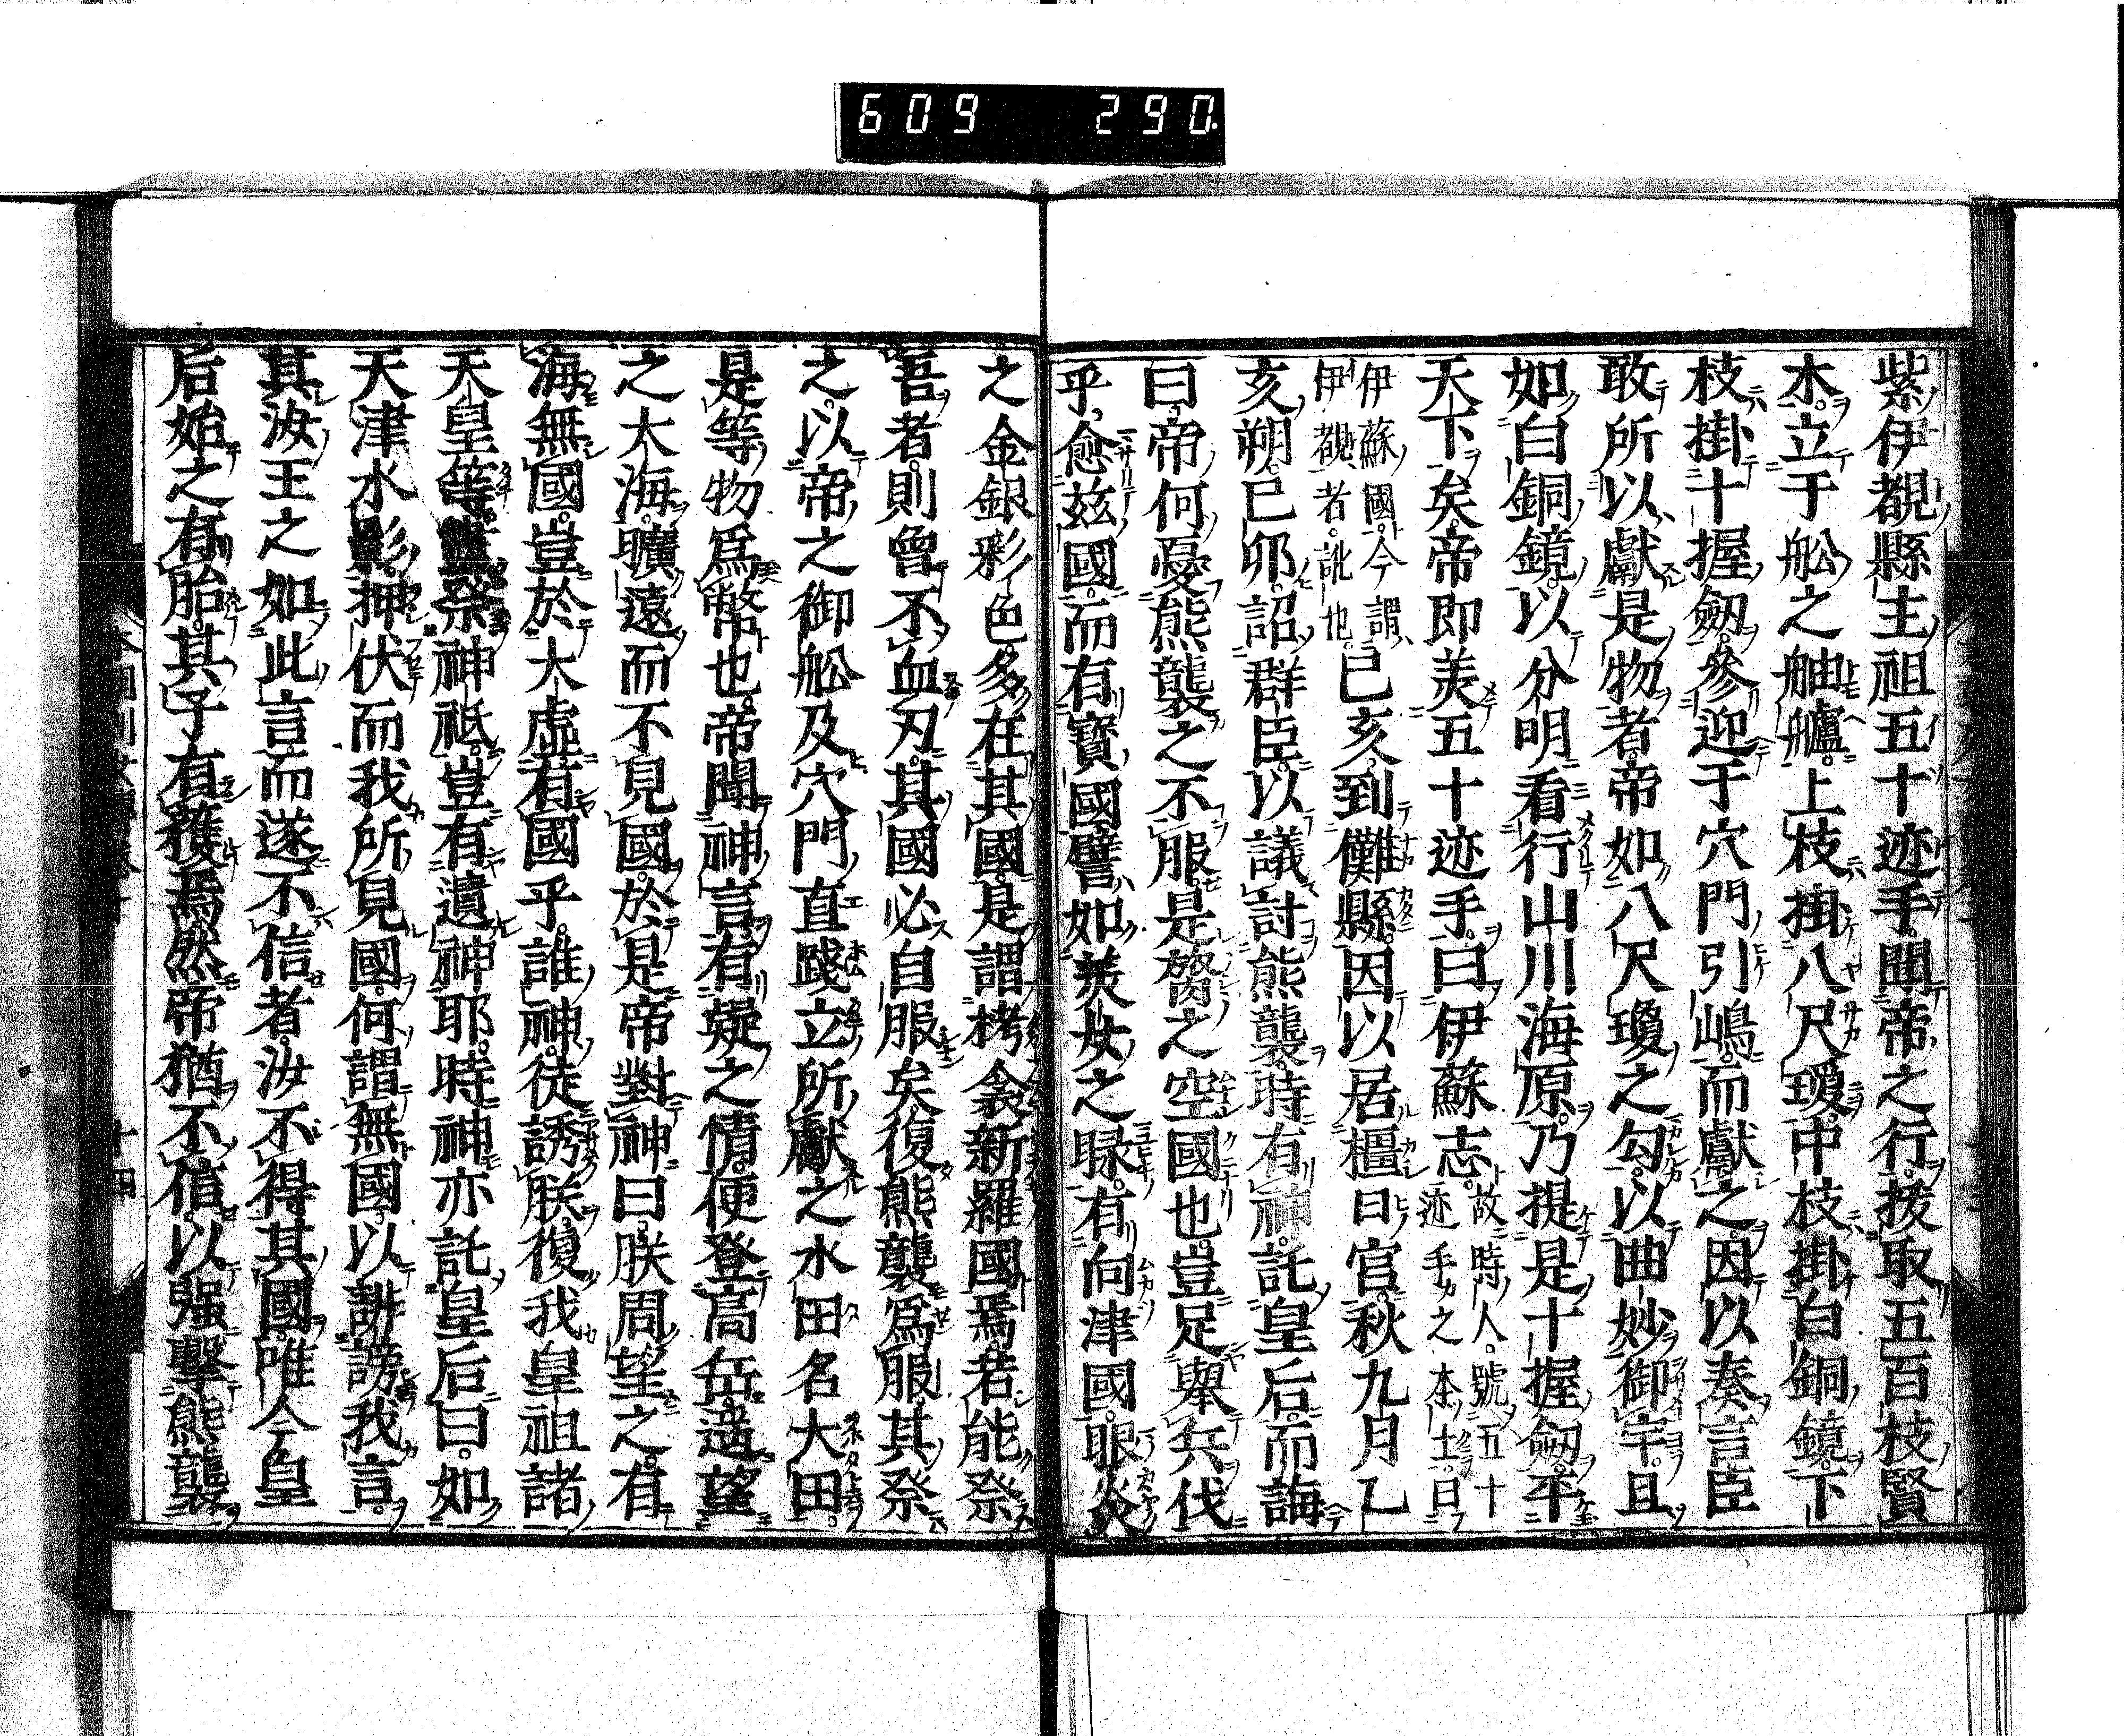 609 290
紫伊覩縣主祖五十迹手聞帝之行拔取五百枝賢
木立于舩之舳艫上枝掛八尺瓊中枝掛白銅鏡下
枝掛十握劒參迎于穴門引嶋而獻之因以奏言臣
敢所以獻是物者帝如八尺瓊之勾以曲妙御宇且
如白銅鏡以分明看行山川海原乃提是十握劒平
天下矣帝即美五十迹手曰伊蘇志故時人號五十
迹手之本土曰
伊蘇國今謂
伊覩者訛也己亥到儺縣因以居橿日宮秋九月乙
亥朔己卯詔群臣以議討熊襲時有神託皇后而誨
曰帝何憂熊襲之不服是膂之空國也豈足舉兵伐
乎愈玆國而有寳國譬如美女之睩有向津國眼炎
之金銀彩色多在其國是謂栲衾新羅國焉若能祭
吾者則曾不血刃其國必自服矣復熊襲爲服其祭
之以帝之御舩及穴門直踐立所獻之水田名大田
是等物爲幣也帝聞神言有疑之情便登高岳遥望
之大海曠遠而不見國於是帝對神曰朕周望之有
海無國豈於大虛有國乎誰神徒誘朕復我皇祖諸
天皇等盡祭神祇豈有遺神耶時神亦託皇后曰如
天津水影押伏而我所見國何謂無國以誹謗我言
其汝王之如此言而遂不信者汝不得其國唯今皇
后始之有胎其子有獲焉然帝猶不信以强擊熊襲
十四